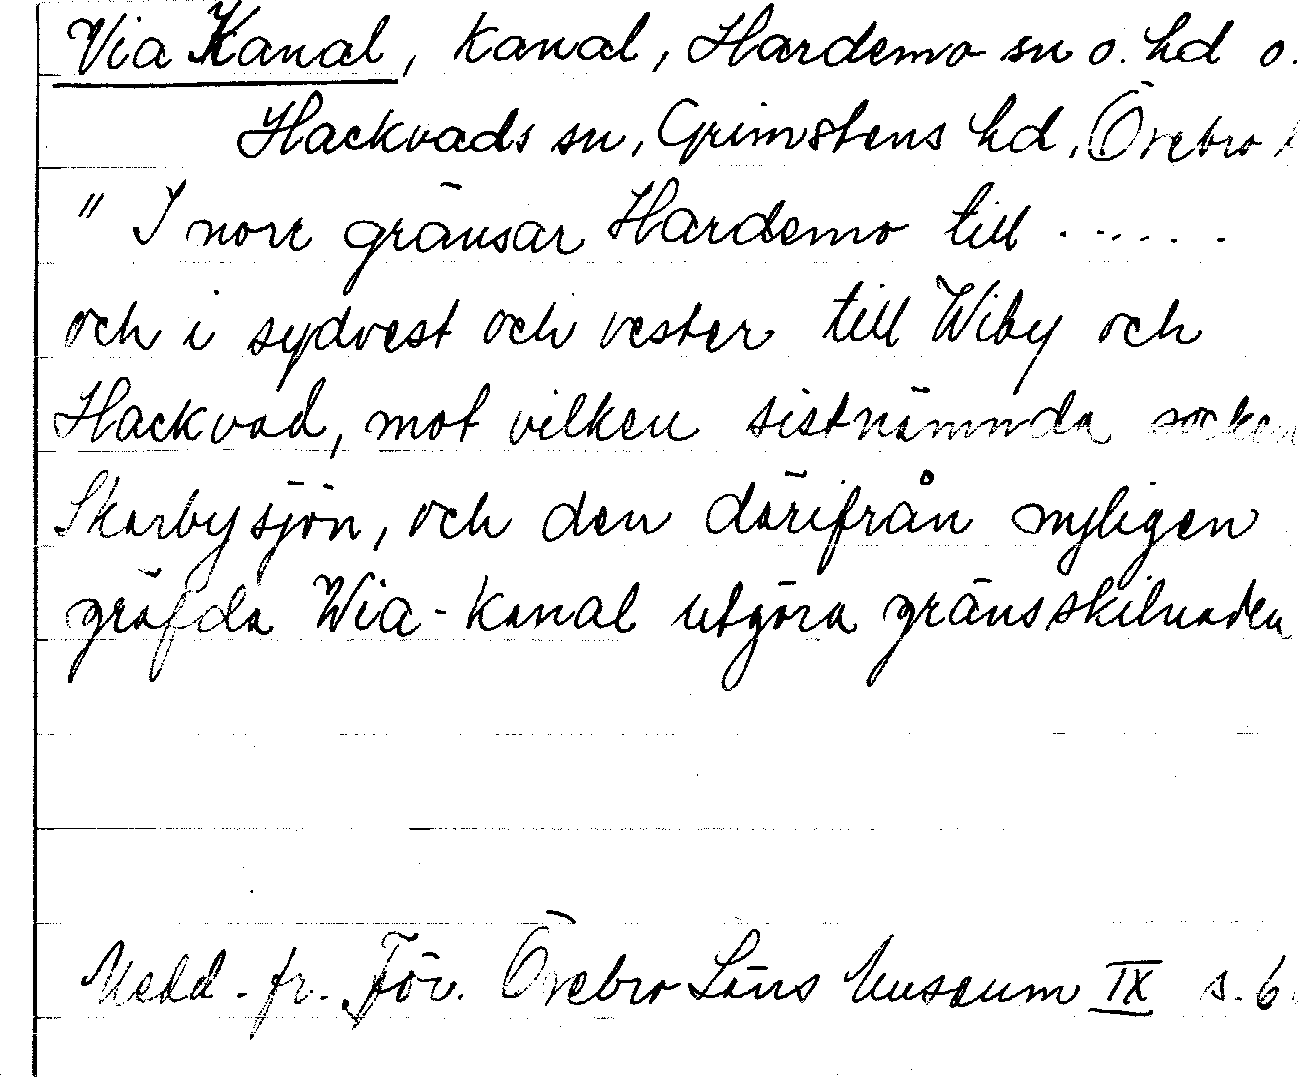 Via Kanal, kanal, Hardemo sn o. hd o.
Hackvads sn, Grimstens hd, Örebro l
" I norr gränsar Hardemo till ......
och i sydvest och vester till Wiby och
Hackvad, mot vilken sistnämnda socken
Skarbysjön, och den därifrån nyligen
gräfda Wia-kanal utgöra gränsskilnaden
Medd. fr. För. Örebro Läns Museum IX s. 6.